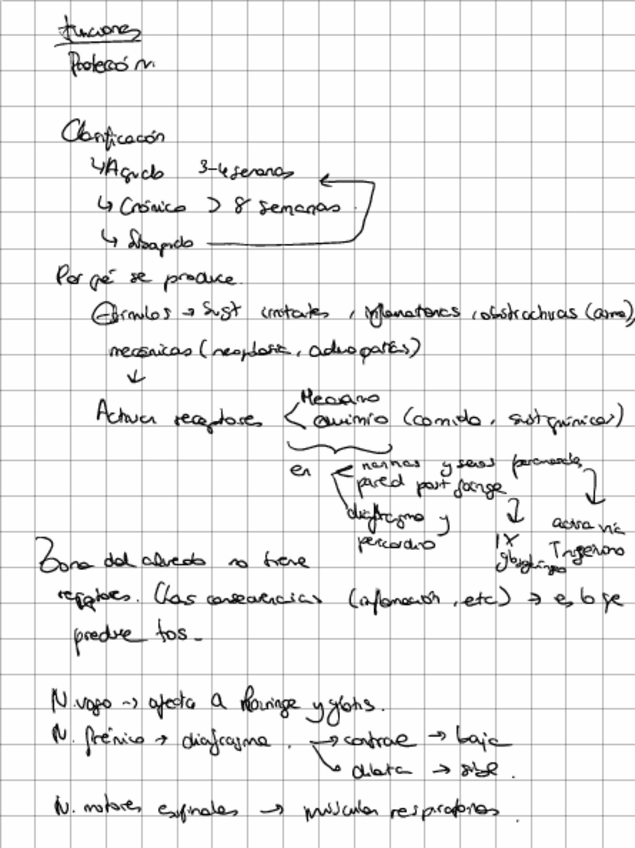 Funciones
Protección.
Clasificación
↳ Agudo 3-4 semanas
↳ Crónico > 8 semanas.
↳ Subagudo
Por qé se produce.
Estímulos → Sust irritantes, inflamatorias, obstructivas (asma),
mecánicas (neoplasia, adenopatías)
↓
Activan receptores < Mecano
químio (comida, sust químicas)
en narinas y senos paranasales,
pared post faringe
diafragma y
pericardio
IX
glosofaríngeo
activa vía
Trigémino
Zona del alveolo no tiene
receptores. (las consecuencias (inflamación, etc) → es lo qe
produce tos.
N. vago → afecta a laringe y glotis.
N. frénico → diafragma. → contrae → baja
↘ dilata → sube.
N. motores espinales → músculos respiratorios.